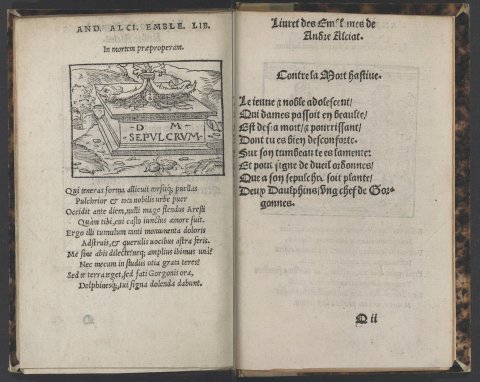 AND. ALCI. EMBLE. LIB.
In mortem præproperam.
D M
SEPULCRUM
Qui teneras forma allicuit torsitq; puellas
Pulchrior & tota nobilis urbe puer
Occidit ante diem, nulli mage flendus Aresti
Quàm tibi, cui casto iunctus amore fuit.
Ergo illi tumulum tanti monumenta doloris
Adstruis, & querulis vocibus astra feris.
Me sine abis dilecte: neq; amplius ibimus unà?
Nec mecum in studiis otia grata teres?
Sed te terra teget, sed fati Gorgonis ora,
Delphinesq; tui signa dolenda dabunt.
Livret des Emblemes de
Andre Alciat.
Contre la Mort hastive.
Le ieune & noble adolescent/
Qui dames passoit en beaulte/
Est desia mort/ & pourrissant/
Dont tu es bien desconforte.
Sur son tumbeau te es lamente:
Et pour signe de dueil ordonnes/
Que a son sepulchre soit plante/
Deux Daulphins/ ung chef de Gor-
gonnes.
D ii